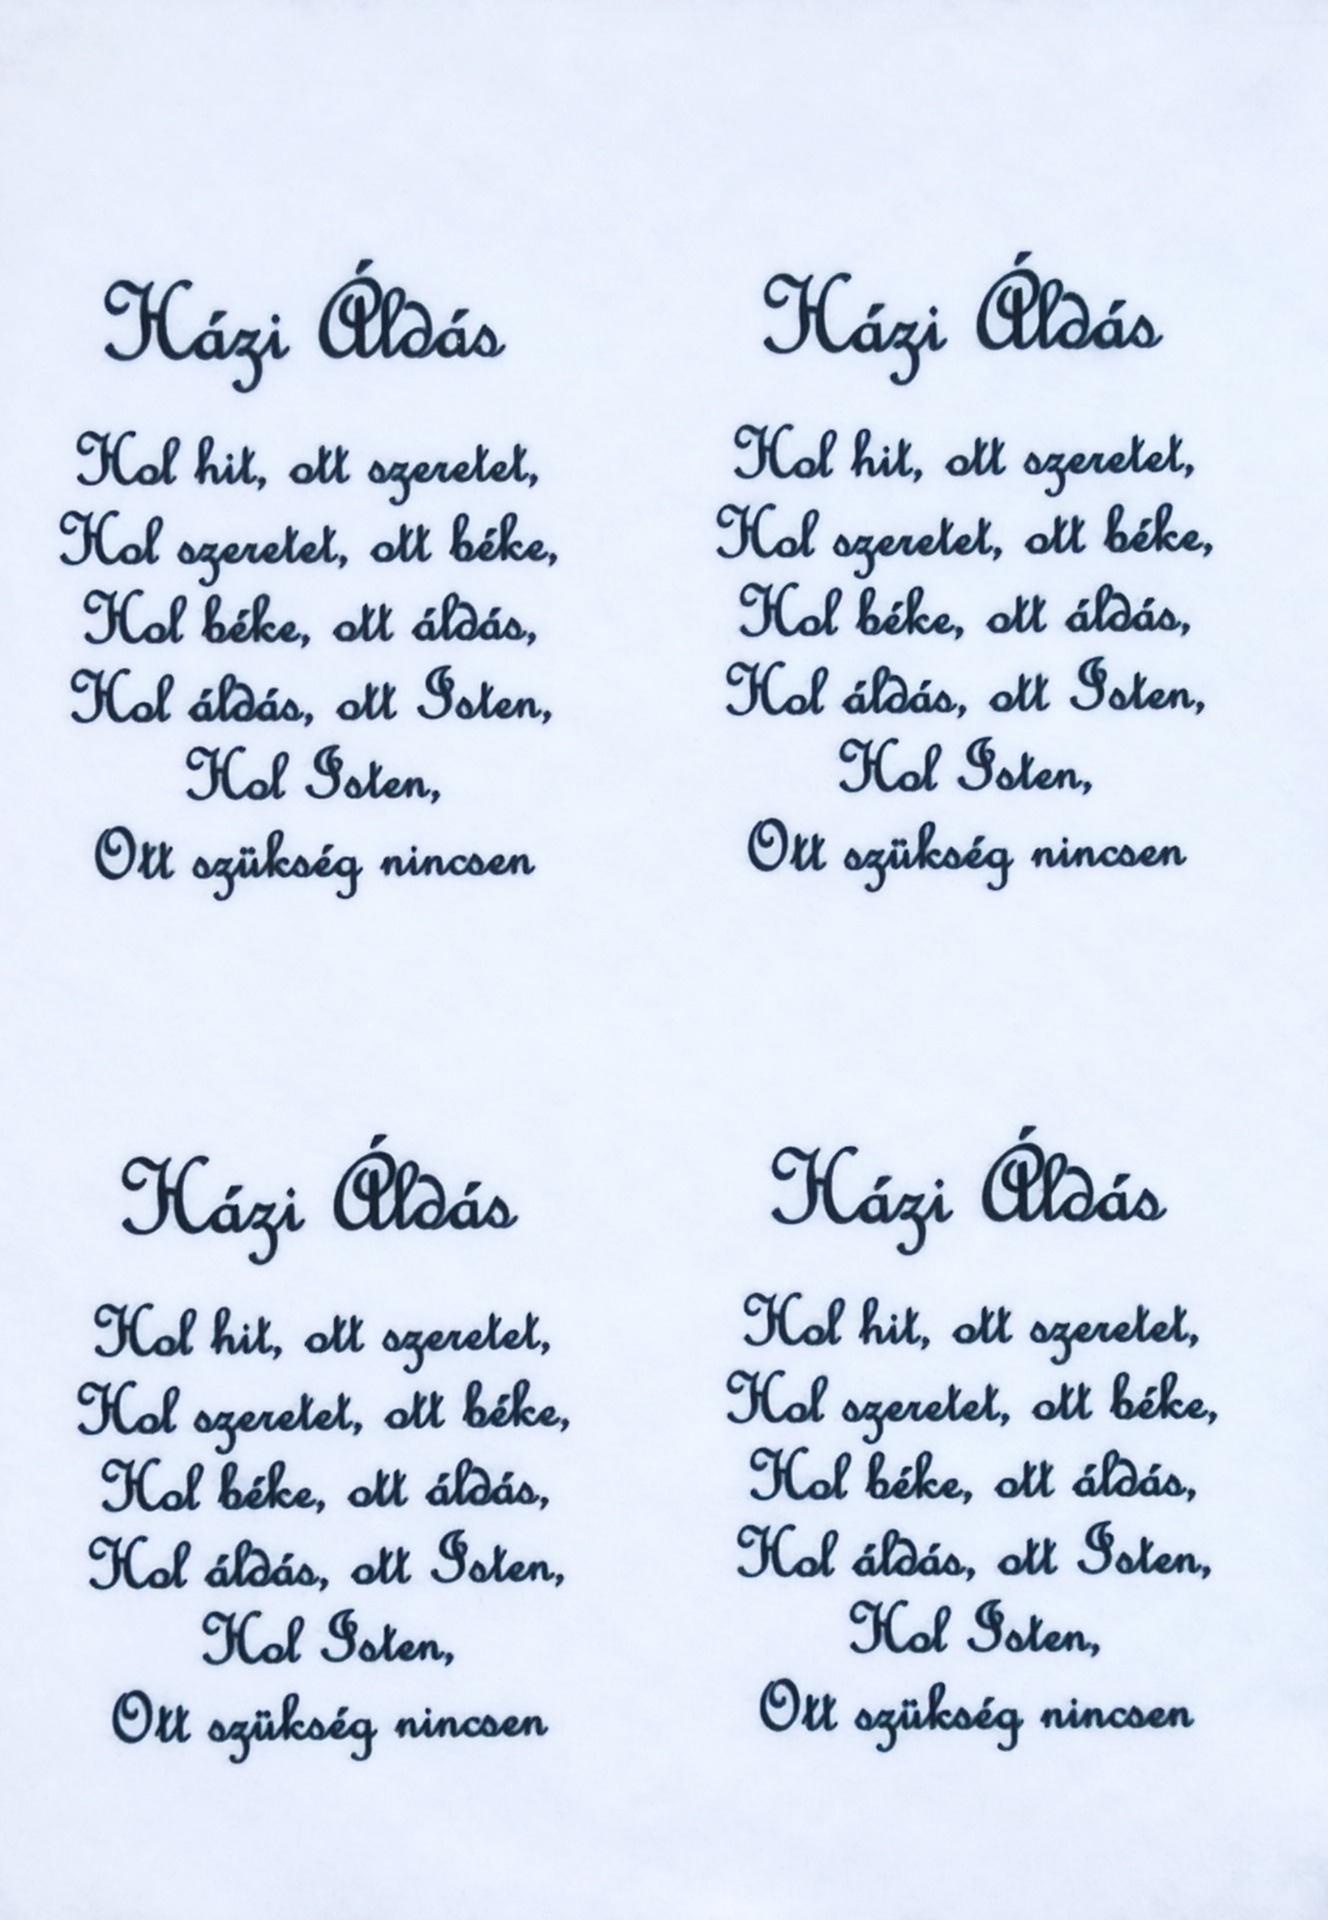 Házi Áldás
Hol hit, ott szeretet,
Hol szeretet, ott béke,
Hol béke, ott áldás,
Hol áldás, ott Isten,
Hol Isten,
Ott szükség nincsen
Házi Áldás
Hol hit, ott szeretet,
Hol szeretet, ott béke,
Hol béke, ott áldás,
Hol áldás, ott Isten,
Hol Isten,
Ott szükség nincsen
Házi Áldás
Hol hit, ott szeretet,
Hol szeretet, ott béke,
Hol béke, ott áldás,
Hol áldás, ott Isten,
Hol Isten,
Ott szükség nincsen
Házi Áldás
Hol hit, ott szeretet,
Hol szeretet, ott béke,
Hol béke, ott áldás,
Hol áldás, ott Isten,
Hol Isten,
Ott szükség nincsen